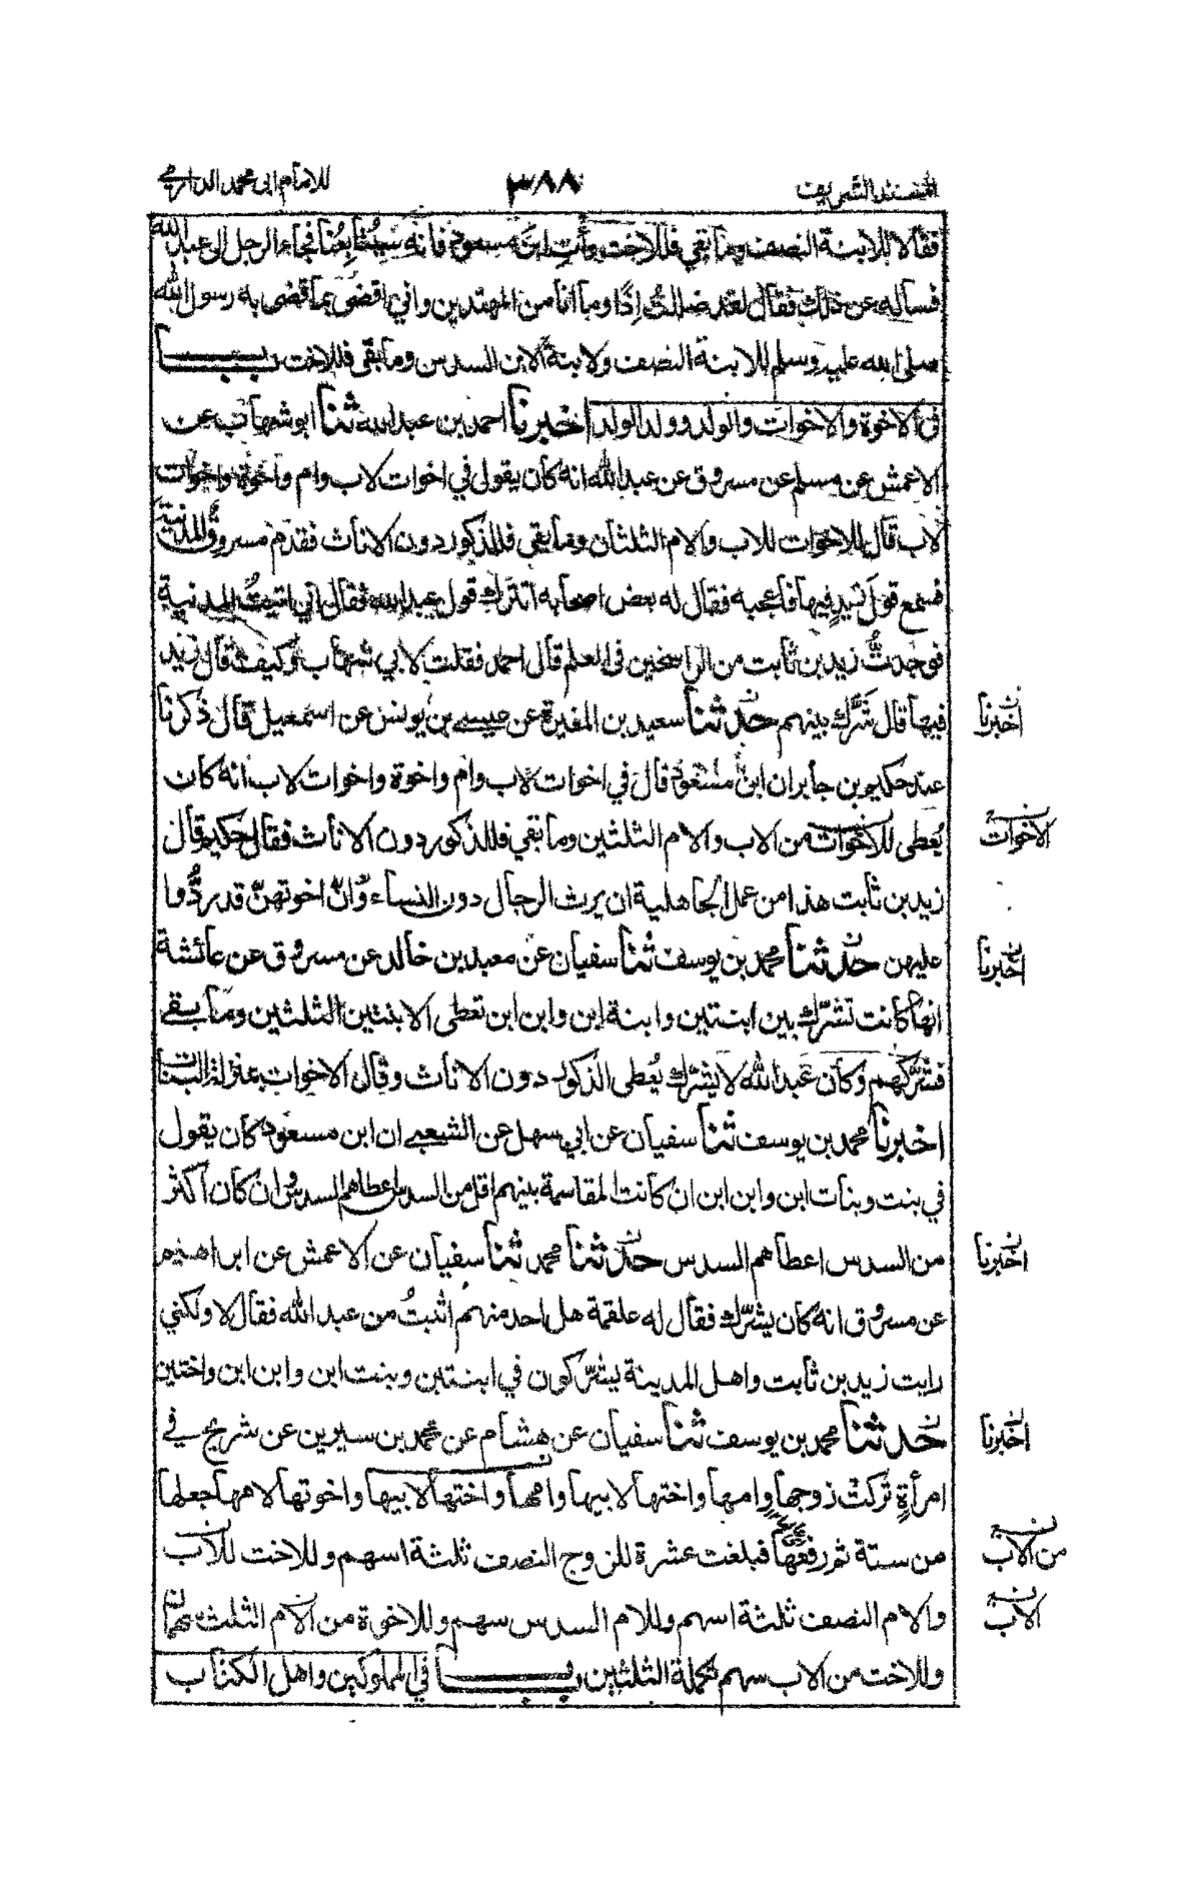 المسند الشريف ٣٨٨ للامام ابى محمد الدارمي
فقالا للابنة النصف وما بقي فللاخت وأت ابن مسعود فانه سيتابعنا فجاء الرجل الى عبد الله
فسأله عن ذلك فقال لقد ضللتُ اِذًا وما انا من المهتدين واني اقضى بما قضى به رسول الله
صلى الله عليه وسلم للابنة النصف ولابنة الابن السدس وما بقى فللاخت باب
فى الاخوة والاخوات والولد وولد الولد اخبرنا احمد بن عبد الله ثنا ابو شهاب عن
الاعمش عن مسلم عن مسروق عن عبد الله انه كان يقول في اخوات لاب وام واخوة واخوات
لاب قال للاخوات للاب والام الثلثان وما بقي فللذكور دون الاناث فقدم مسروق المدينة
فسمع قول زيد فيها فاعجبه فقال له بعض اصحابه اتترك قول عبد الله فقال اني اتيت المدينة
فوجدتُ زيد بن ثابت من الراسخين فى العلم قال احمد فقلت لابي شهاب وكيف قال زيد
فيها قال شَرَّك بينهم حدثنا سعيد بن المغيرة عن عيسى بن يونس عن اسمعيل قال ذكرنا
اخبرنا
عند حكيم بن جابر ان ابن مسعود قال في اخوات لاب وام واخوة واخوات لاب انه كان
يُعطى للاخوات من الاب والام الثلثين وما بقي فللذكور دون الاناث فقال حكيم قال
الاخوات
زيد بن ثابت هذا من عمل الجاهلية ان يرث الرجال دون النساء وّانّ اخوتهنّ قد ردُّوا
عليهن حدثنا محمد بن يوسف ثنا سفيان عن معبد بن خالد عن مسروق عن عائشة
اخبرنا
انها كانت تشرّك بين ابنتين وابنة ابن وابن ابن تعطى الابنتين الثلثين وما بقي
فشرّكهم وكان عبد الله لا يشرّك يُعطى الذكور دون الاناث وقال الاخوات بمنزلة البنات
اخبرنا محمد بن يوسف ثنا سفيان عن ابي سهل عن الشعبي ان ابن مسعود كان يقول
في بنت وبنات ابن وابن ابن ان كانت المقاسمة بينهم اقل من السدس اعطاهم السدس وان كان اكثر
من السدس اعطاهم السدس حدثنا محمد ثنا سفيان عن الاعمش عن ابراهيم
اخبرنا
عن مسروق انه كان يشرّك فقال له علقمة هل احد منهم اثبتُ من عبد الله فقال لا ولكني
رايت زيد بن ثابت واهل المدينة يشرّكون في ابنتين وبنت ابن وابن ابن واختين
حدثنا محمد بن يوسف ثنا سفيان عن هشام عن محمد بن سيرين عن شريح في
اخبرنا
امرأةٍ تركتْ زوجها وامها واختها لابيها وامها واختها لابيها واخوتها لامها جعلها
من ستة ثم رفعها فبلغت عشرة للزوج النصف ثلثة اسهم وللاخت للاب
من الاب
والام النصف ثلثة اسهم وللام السدس سهم وللاخوة من الام الثلث سهمان
الاب
وللاخت من الاب سهم تكملة الثلثين باب في المملوكين واهل الكتاب